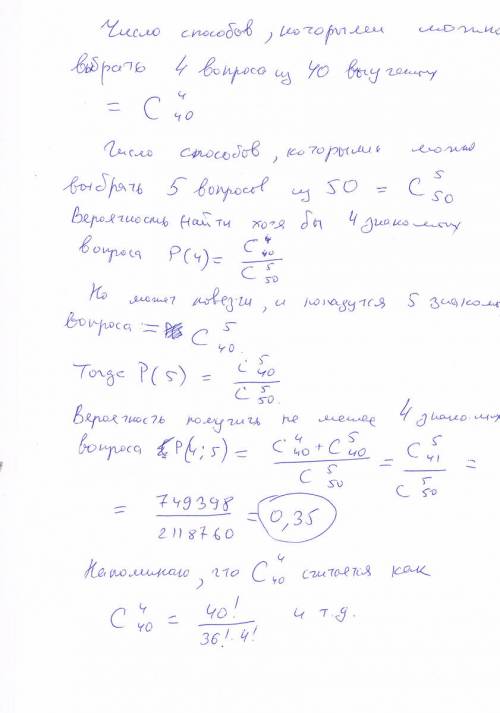 Число способов, которыми можно
выбрать 4 вопроса из 40 выученных
= C⁴₄₀
Число способов, которыми можно
выбрать 5 вопросов из 50 = C⁵₅₀
Вероятность найти хотя бы 4 знакомых
вопроса P(4) = C⁴₄₀ / C⁵₅₀
Но может повезти, и попадутся 5 знаком
вопроса = C⁵₄₀.
Тогда P(5) = C⁵₄₀ / C⁵₅₀.
Вероятность получить не менее 4 знакомых
вопроса P(4;5) = (C⁴₄₀ + C⁵₄₀) / C⁵₅₀ = C⁵₄₁ / C⁵₅₀ =
= 749398 / 2118760 = 0,35
Напоминаю, что C⁴₄₀ считается как
C⁴₄₀ = 40! / 36!·4! и т.д.